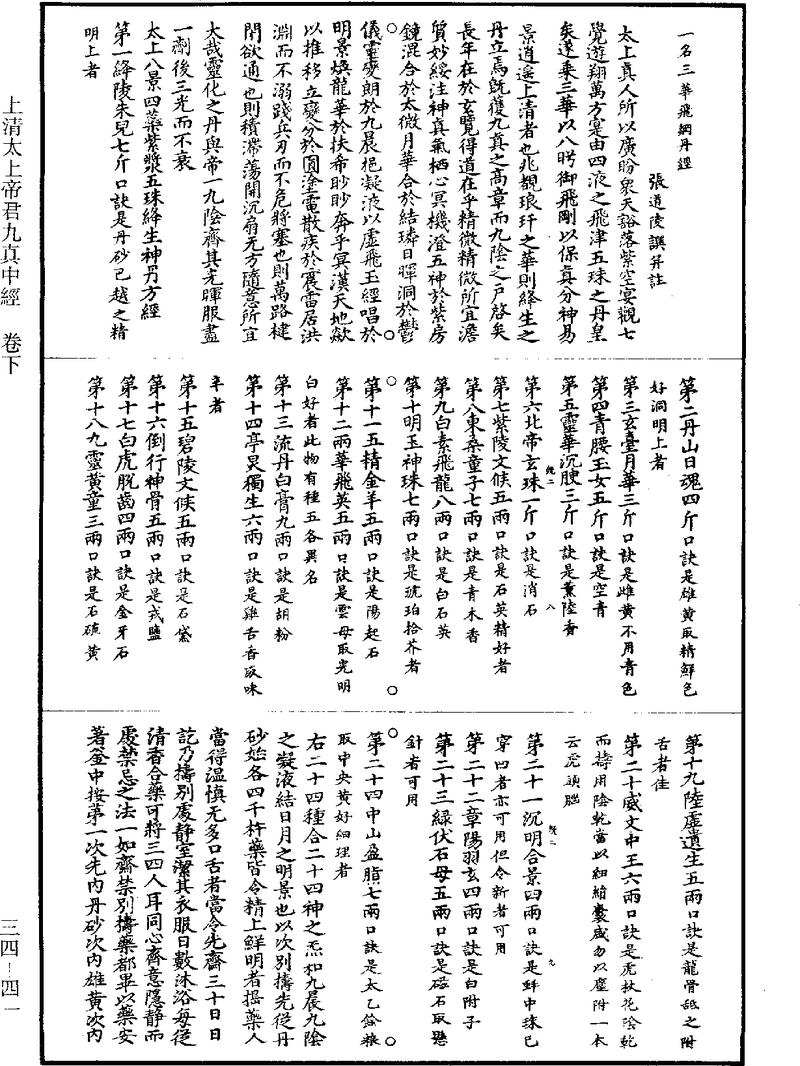 一名三華飛綱丹經
張道陵譔并註
太上真人所以廣盼衆天豁落紫空宴觀七
覺遊翔萬方寔由四液之飛津五珠之丹皇
矣遂乘三華以八眄御飛剛以保真分神易
景逍遥上清者也兆覩琅玕之華則絳生之
丹立焉旣獲九真之高章而九陰之户啓矣
長年在於玄覽得道在乎精微精微所宜澹
質妙綏注神真氣栖心冥機澄五神於紫房
鐘混合於太微月華合於結璘日暉洞於鬱
儀靈變朗於九晨挹凝液以虛飛玉經唱於
明景煥龍華於扶希眇眇奔乎冥漢天地歘
以推移立變分於圓塗雷散疾於震雷居洪
淵而不溺踐兵刃而不危將塞也則萬路揵
閇欲通也則積滯蕩開沉痾无方隨意所宜
大哉靈化之丹與帝一九陰齊其光暉服盡
一劑後三光而不衰
太上八景四蘂紫漿五珠絳生神丹方經
第一絳陵朱兒七斤口訣是丹砂巴越之精
明上者
第二丹山日魂四斤口訣是雄黄取精鮮色
好洞明上者
第三玄臺月華三斤口訣是雌黄不用青色
第四青腰玉女五斤口訣是空青
第五靈華沉腴三斤口訣是薰陸香
第六北帝玄珠一斤口訣是消石
第七紫陵文侯五兩口訣是石英精好者
第八東桑童子七兩口訣是青木香
第九白素飛龍八兩口訣是白石英
第十明玉神珠七兩口訣是琥珀拾芥者
第十一五精金羊五兩口訣是陽起石
第十二兩華飛英五兩口訣是雲母取光明
白好者此物有種五各異名
第十三流丹白膏九兩口訣是胡粉
第十四亭炅獨生六兩口訣是雞舌香取味
辛者
第十五碧陵文侯五兩口訣是石黛
第十六倒行神骨五兩口訣是戎鹽
第十七白虎脱齒四兩口訣是金牙石
第十八九靈黄童三兩口訣是石硫黄
第十九陸虛遺生五兩口訣是龍骨舐之附
舌者佳
第二十威文中王六兩口訣是虎杖花陰乾
而擣用陰乾當以細絹囊盛勿以塵附一本
云虎頭腦
第二十一沉明合景四兩口訣是蚌中珠已
穿四者亦可用但令新者可用
第二十二章陽羽玄四兩口訣是白附子
第二十三緑伏石母五兩口訣是磁石取懸
針者可用
第二十四中山盈脂七兩口訣是太乙餘粮
取中央黄好細理者
右二十四種合二十四神之炁和九晨九陰
之凝液結日月之明景也以次别擣先從丹
砂始各四千杵藥皆令精上鮮明者擣藥人
當得温慎无多口舌者當令先齋三十日日
訖乃擣别處静室潔其衣服日數沐浴每從
清香合藥可將三四人耳同心齊意隱静而
處禁忌之法一如齋禁别擣藥都畢以藥安
著釜中按第一次先内丹砂次内雄黄次内
上清太上帝君九真中經　卷下
三四—四一